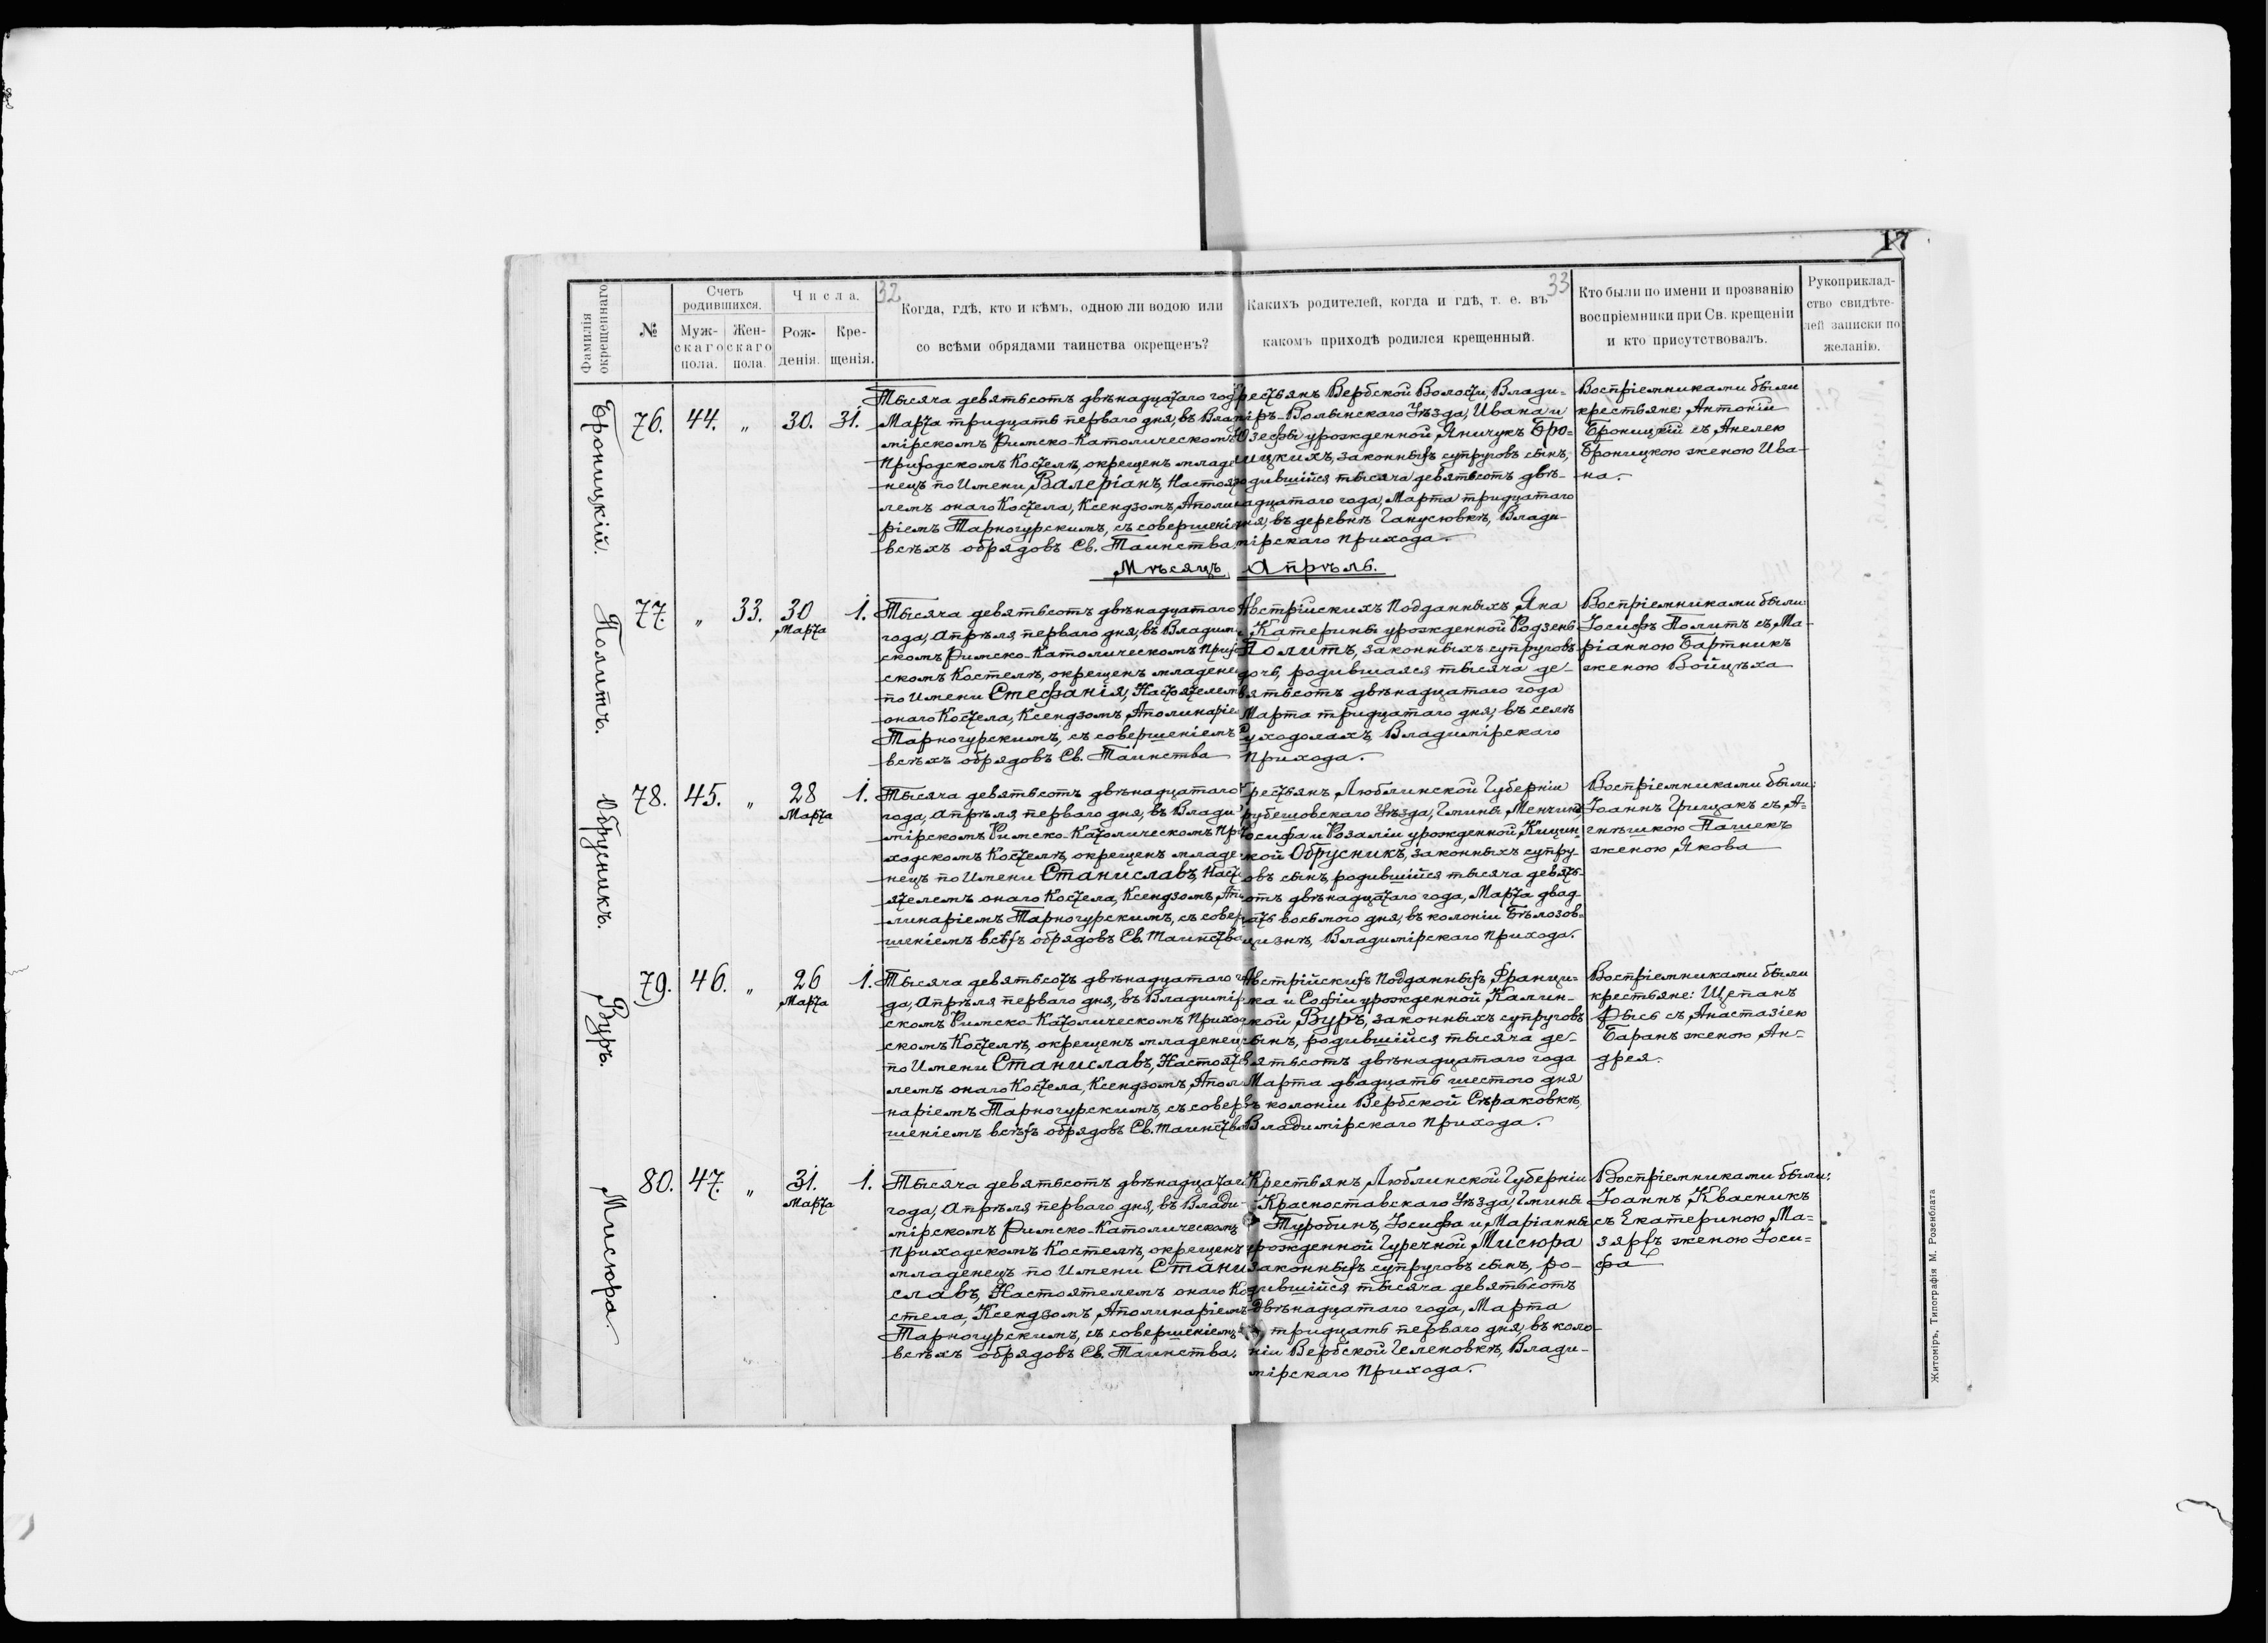 17
32
33
Фамилія окрещеннаго.
№
Счетъ родившихся.
Муж-
скаго
пола.
Жен-
скаго
пола.
Числа.
Рож-
денія.
Кре-
щенія.
Когда, гдѣ, кто и кѣмъ, одною ли водою или
со всѣми обрядами таинства окрещенъ?
Какихъ родителей, когда и гдѣ, т. е. въ
какомъ приходѣ родился крещенный.
Кто были по имени и прозванію
воспріемники при Св. крещеніи
и кто присутствовалъ.
Рукоприклад-
ство свидѣте-
лей записки по
желанію.
Броницкій.
76. 44. „ 30. 31.
Тысяча девятьсотъ двѣнадцатаго год
Марта тридцать перваго дня, въ Влад
мірскомъ Римско-Католическомъ
Приходскомъ Костелѣ, окрещенъ младе
нецъ по Имени Валеріанъ, Настоя
лемъ онаго Костела, Ксендзомъ, Аполи
ріемъ Тарногурскимъ, съ совершені
всѣхъ обрядовъ Св. Таинства.
рестьянъ Вербской Волости, Влади-
міръ-Волынскаго Уѣзда, Ивана и
Юзефы урожденной Яничукъ Бро-
ицкихъ, законныхъ супруговъ сынъ,
одившійся тысяча девятьсотъ двѣ-
адцатаго года, Марта тридцатаго
ня, въ деревнѣ Ганусювкѣ, Влади-
мірскаго прихода.
Воспріемниками были
крестьяне: Антоній
Броницкій съ Анелею
Броницкою женою Ива-
на.
Мѣсяцъ Апрѣль.
Политъ.
77. „ 33. 30 Марта 1.
Тысяча девятьсотъ двѣнадцатаго
года, Апрѣля перваго дня, въ Владим
скомъ Римско-Католическомъ Прихо
скомъ Костелѣ, окрещенъ младене
по Имени Стефанія, Настоятелем
онаго Костела, Ксендзомъ Аполинаріе
Тарногурскимъ, съ совершеніемъ
всѣхъ обрядовъ Св. Таинства
Австрійскихъ подданныхъ Яна
и Катерины урожденной Родзень
Политъ, законныхъ супруговъ
дочь, родившаяся тысяча де-
вятьсотъ двѣнадцатаго года
Марта тридцатаго дня, въ селѣ
Суходолахъ, Владимірскаго
прихода.
Воспріемниками были:
Іосифъ Политъ съ Ма-
ріанною Бартникъ
женою Войцѣха
Обрусникъ.
78. 45. „ 28 Марта 1.
Тысяча девятьсотъ двѣнадцатаго
года, Апрѣля перваго дня, въ Влади
мірскомъ Римско-Католическомъ Пр
ходскомъ Костелѣ, окрещенъ младе
нецъ по Имени Станиславъ, Наст
ятелемъ онаго Костела, Ксендзомъ, Апо
линаріемъ Тарногурскимъ, съ совер
шеніемъ всѣхъ обрядовъ Св. Таинства
рестьянъ Люблинской Губерніи
рубешовскаго Уѣзда, Гмины Менчинъ,
Іосифа и Розаліи урожденной Кицин
кой Обрусникъ, законныхъ супру-
овъ сынъ, родившійся тысяча девять-
отъ двѣнадцатаго года, Марта двад
ать восьмого дня, въ колоніи Бѣлозов-
щизнѣ, Владимірскаго прихода.
Воспріемниками были:
Іоаннъ Грицакъ съ А-
гнѣшкою Пашекъ
женою Якова
Вуръ.
79. 46. „ 26 Марта 1.
Тысяча девятьсотъ двѣнадцатаго го
да, Апрѣля перваго дня, въ Владимір
скомъ Римско-Католическомъ Приход
скомъ Костелѣ, окрещенъ младенец
по Имени Станиславъ, Настояте
лемъ онаго Костела, Ксендзомъ, Апол
наріемъ Тарногурскимъ, съ совер
шеніемъ всѣхъ обрядовъ Св. Таинства
Австрійскихъ подданныхъ Франци-
ка и Софіи урожденной Калин-
кой Вуръ, законныхъ супруговъ
сынъ, родившійся тысяча де-
вятьсотъ двѣнадцатаго года
Марта двадцать шестого дня
въ колоніи Вербской Сѣраковкѣ,
Владимірскаго прихода.
Воспріемниками были
крестьяне: Щепанъ
Рысь съ Анастазіею
Баранъ женою Ан-
дрея.
Мисюра.
80. 47. „ 31. Марта 1.
Тысяча девятьсотъ двѣнадцатаго
года, Апрѣля перваго дня, въ Влади-
мірскомъ Римско-Католическомъ
Приходскомъ Костелѣ, окрещенъ
младенецъ по Имени Стани
славъ, Настоятелемъ онаго Ко
стела, Ксендзомъ, Аполинаріемъ
Тарногурскимъ, съ совершеніемъ
всѣхъ обрядовъ Св. Таинства.
Крестьянъ Люблинской Губерніи
Красноставскаго Уѣзда, Гмины
Туробинъ, Іосифа и Маріанны
урожденной Гуречной Мисюра
законныхъ супруговъ сынъ, ро-
дившійся тысяча девятьсотъ
двѣнадцатаго года, Марта
тридцать перваго дня, въ коло-
ніи Вербской Геленовкѣ, Влади-
мірскаго прихода.
Воспріемниками были:
Іоаннъ Квасникъ
съ Екатериною Ма-
зяръ женою Іоси-
фа
Житоміръ, Типографія М. Розенблата